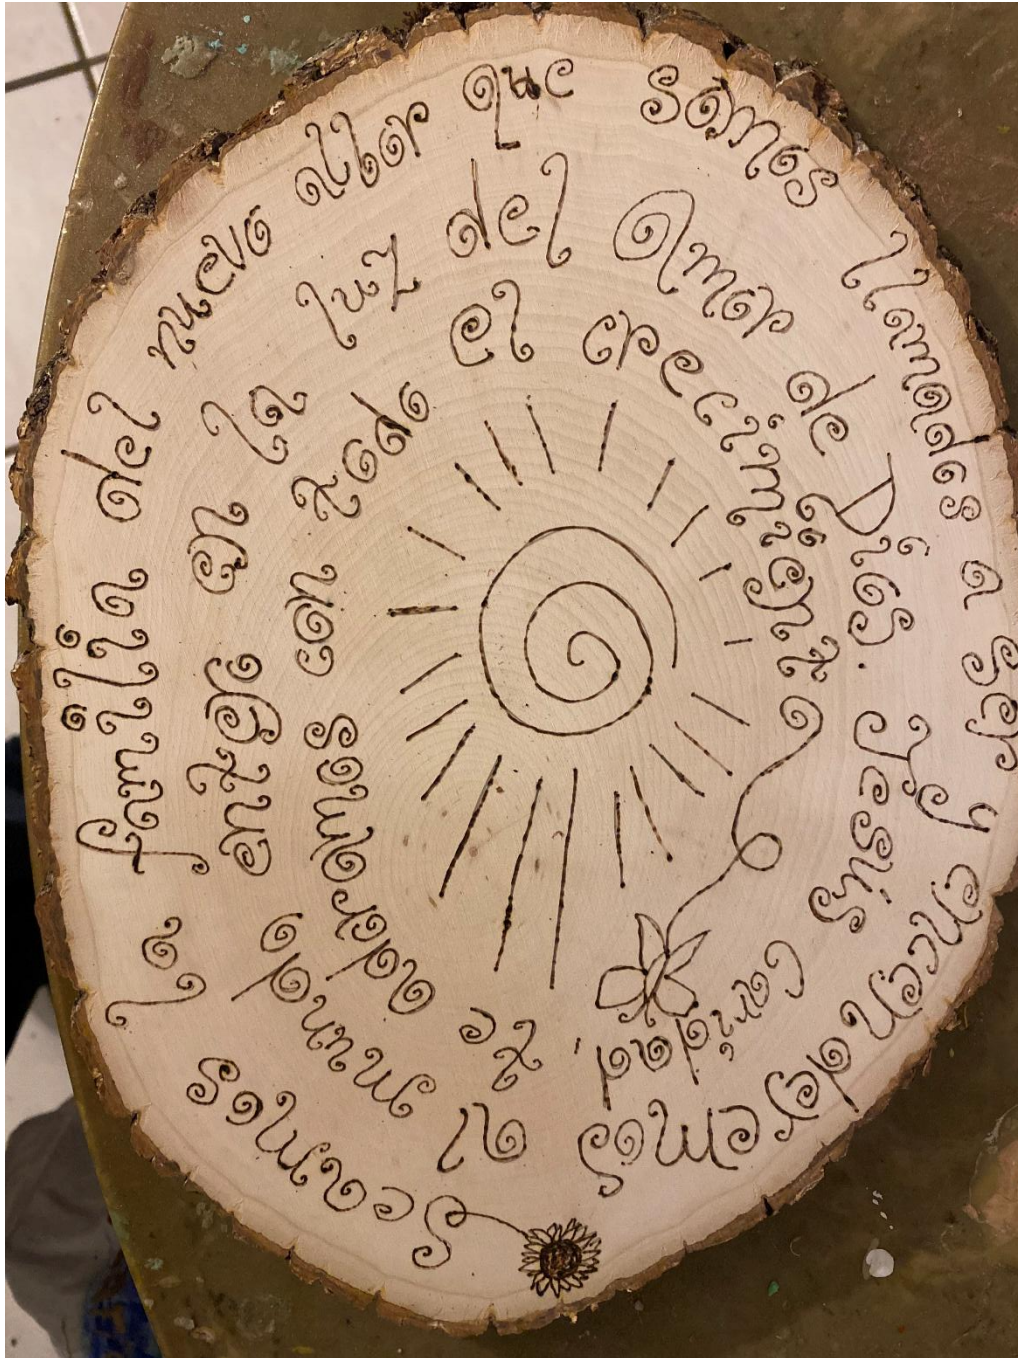 Seamos la familia del nuevo que somos llamados a ser y encenderemos
al mundo entero en la luz del Amor de Dios. Jesús Caridad,
te adoramos con todo el crecimiento